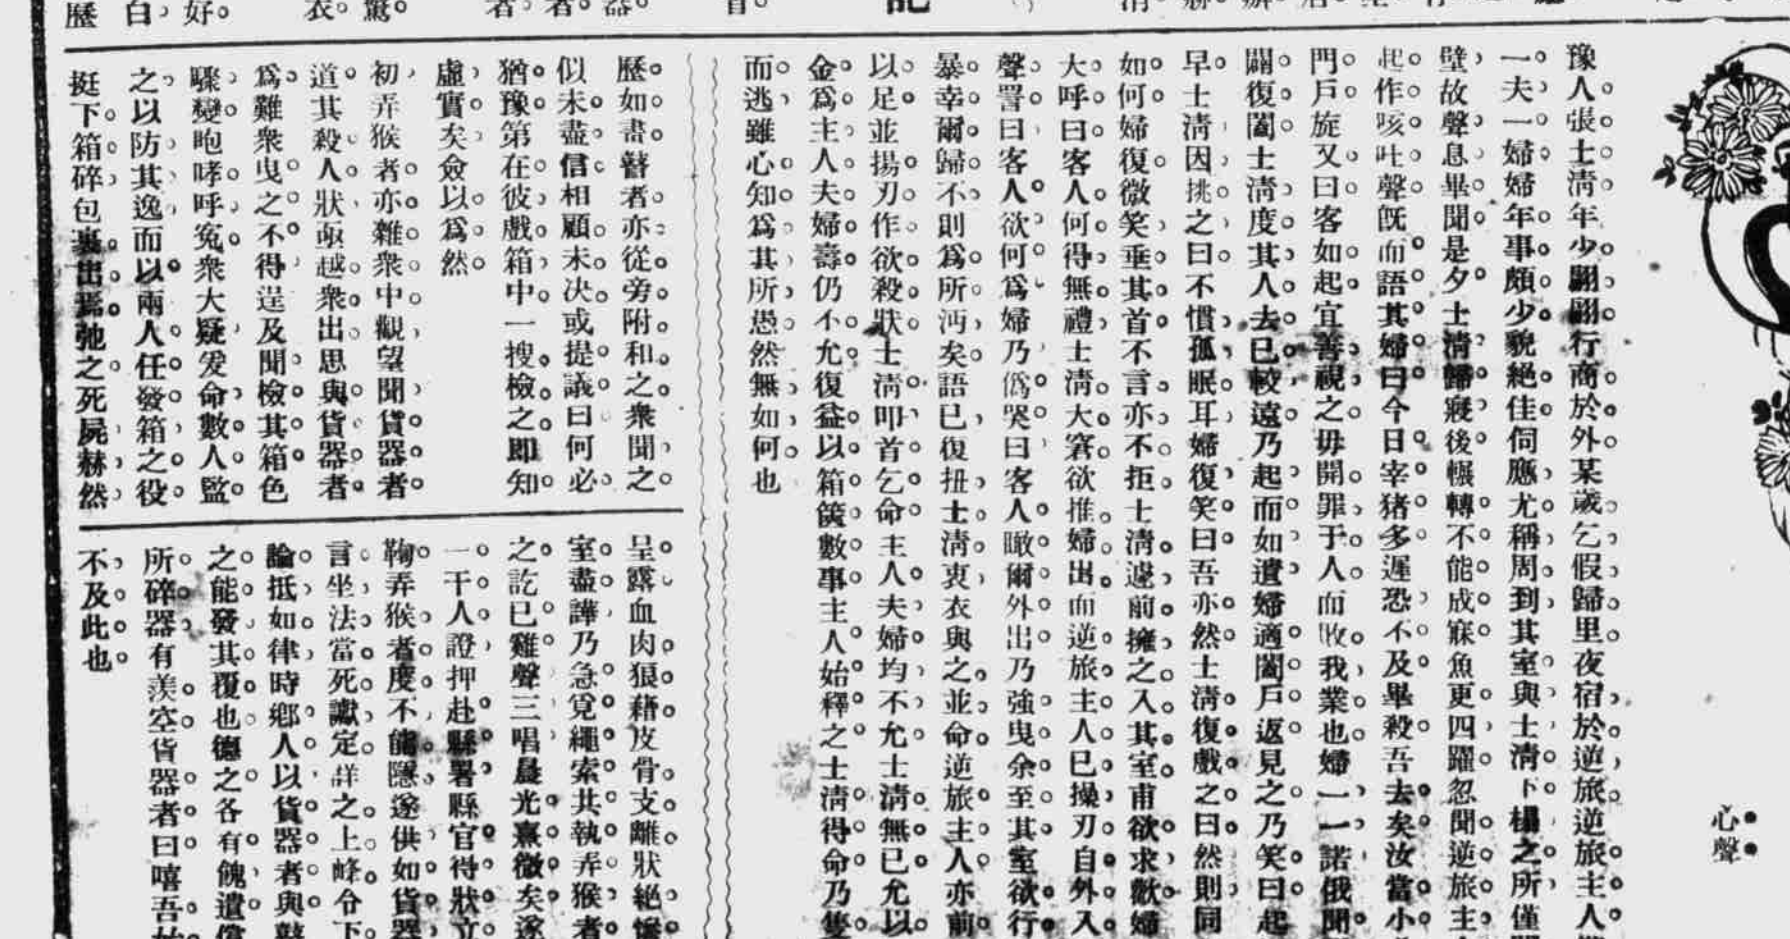 心聲
豫人張士淸年少翩翩行商於外某歲乞假歸里夜宿於逆旅逆旅主人
一夫一婦婦年事頗少貌絕佳伺應尤稱周到其室與士淸下榻之所僅
壁故聲息畢聞是夕士淸歸寢後輾轉不能成寐魚更四躍忽聞逆旅主
起作咳吐聲旣而語其婦曰今日宰猪多遲恐不及畢殺吾去矣汝當小
門戶旋又曰客如起宜善視之毋開罪于人而敗我業也婦一一諾俄聞
闢復闔士淸度其人去已較遠乃起而如遺婦適闔戶返見之乃笑曰起
早士淸因挑之曰不慣孤眠耳婦復笑曰吾亦然士淸復戲之曰然則同
如何婦復微笑垂其首不言亦不拒士淸遽前擁之入其室甫欲求歡婦
大呼曰客人何得無禮士淸大窘欲推婦出而逆旅主人已操刃自外入
聲詈曰客人欲何爲婦乃僞哭曰客人瞰爾外出乃強曳余至其室欲行
暴幸爾歸不則爲所沔矣語已復扭士淸衷衣與之並命逆旅主人亦前
以足並揚刃作欲殺狀士淸叩首乞命主人夫婦均不允士淸無已允以
金爲主人夫婦壽仍不允復益以箱篋數事主人始釋之士淸得命乃隻
而逃雖心知爲其所愚然無如何也
歷如晝瞽者亦從旁附和之衆聞之
似未盡信相顧未決或提議曰何必
猶豫第在彼戲箱中一搜檢之卽知
虛實矣僉以爲然
初弄猴者亦雜衆中觀望聞貨器者
道其殺人狀亟越衆出思與貨器者
爲難衆曳之不得逞及聞檢其箱色
驟變咆哮呼寃衆大疑爰命數人監
之以防其逸而以兩人任發箱之役
挺下箱碎包裹出焉弛之死屍赫然
呈露血肉狼藉皮骨支離狀絕慘
室盡譁乃急覓繩索共執弄猴者
之訖已雞聲三唱晨光熹微矣遂
一干人證押赴縣署縣官得狀立
鞠弄猴者度不能隱遂供如貨器
言坐法當死讞定詳之上峰令下
論抵如律時鄕人以貨器者與瞽
之能發其覆也德之各有餽遺償
所碎器有羨空貨器者曰嘻吾始
不及此也